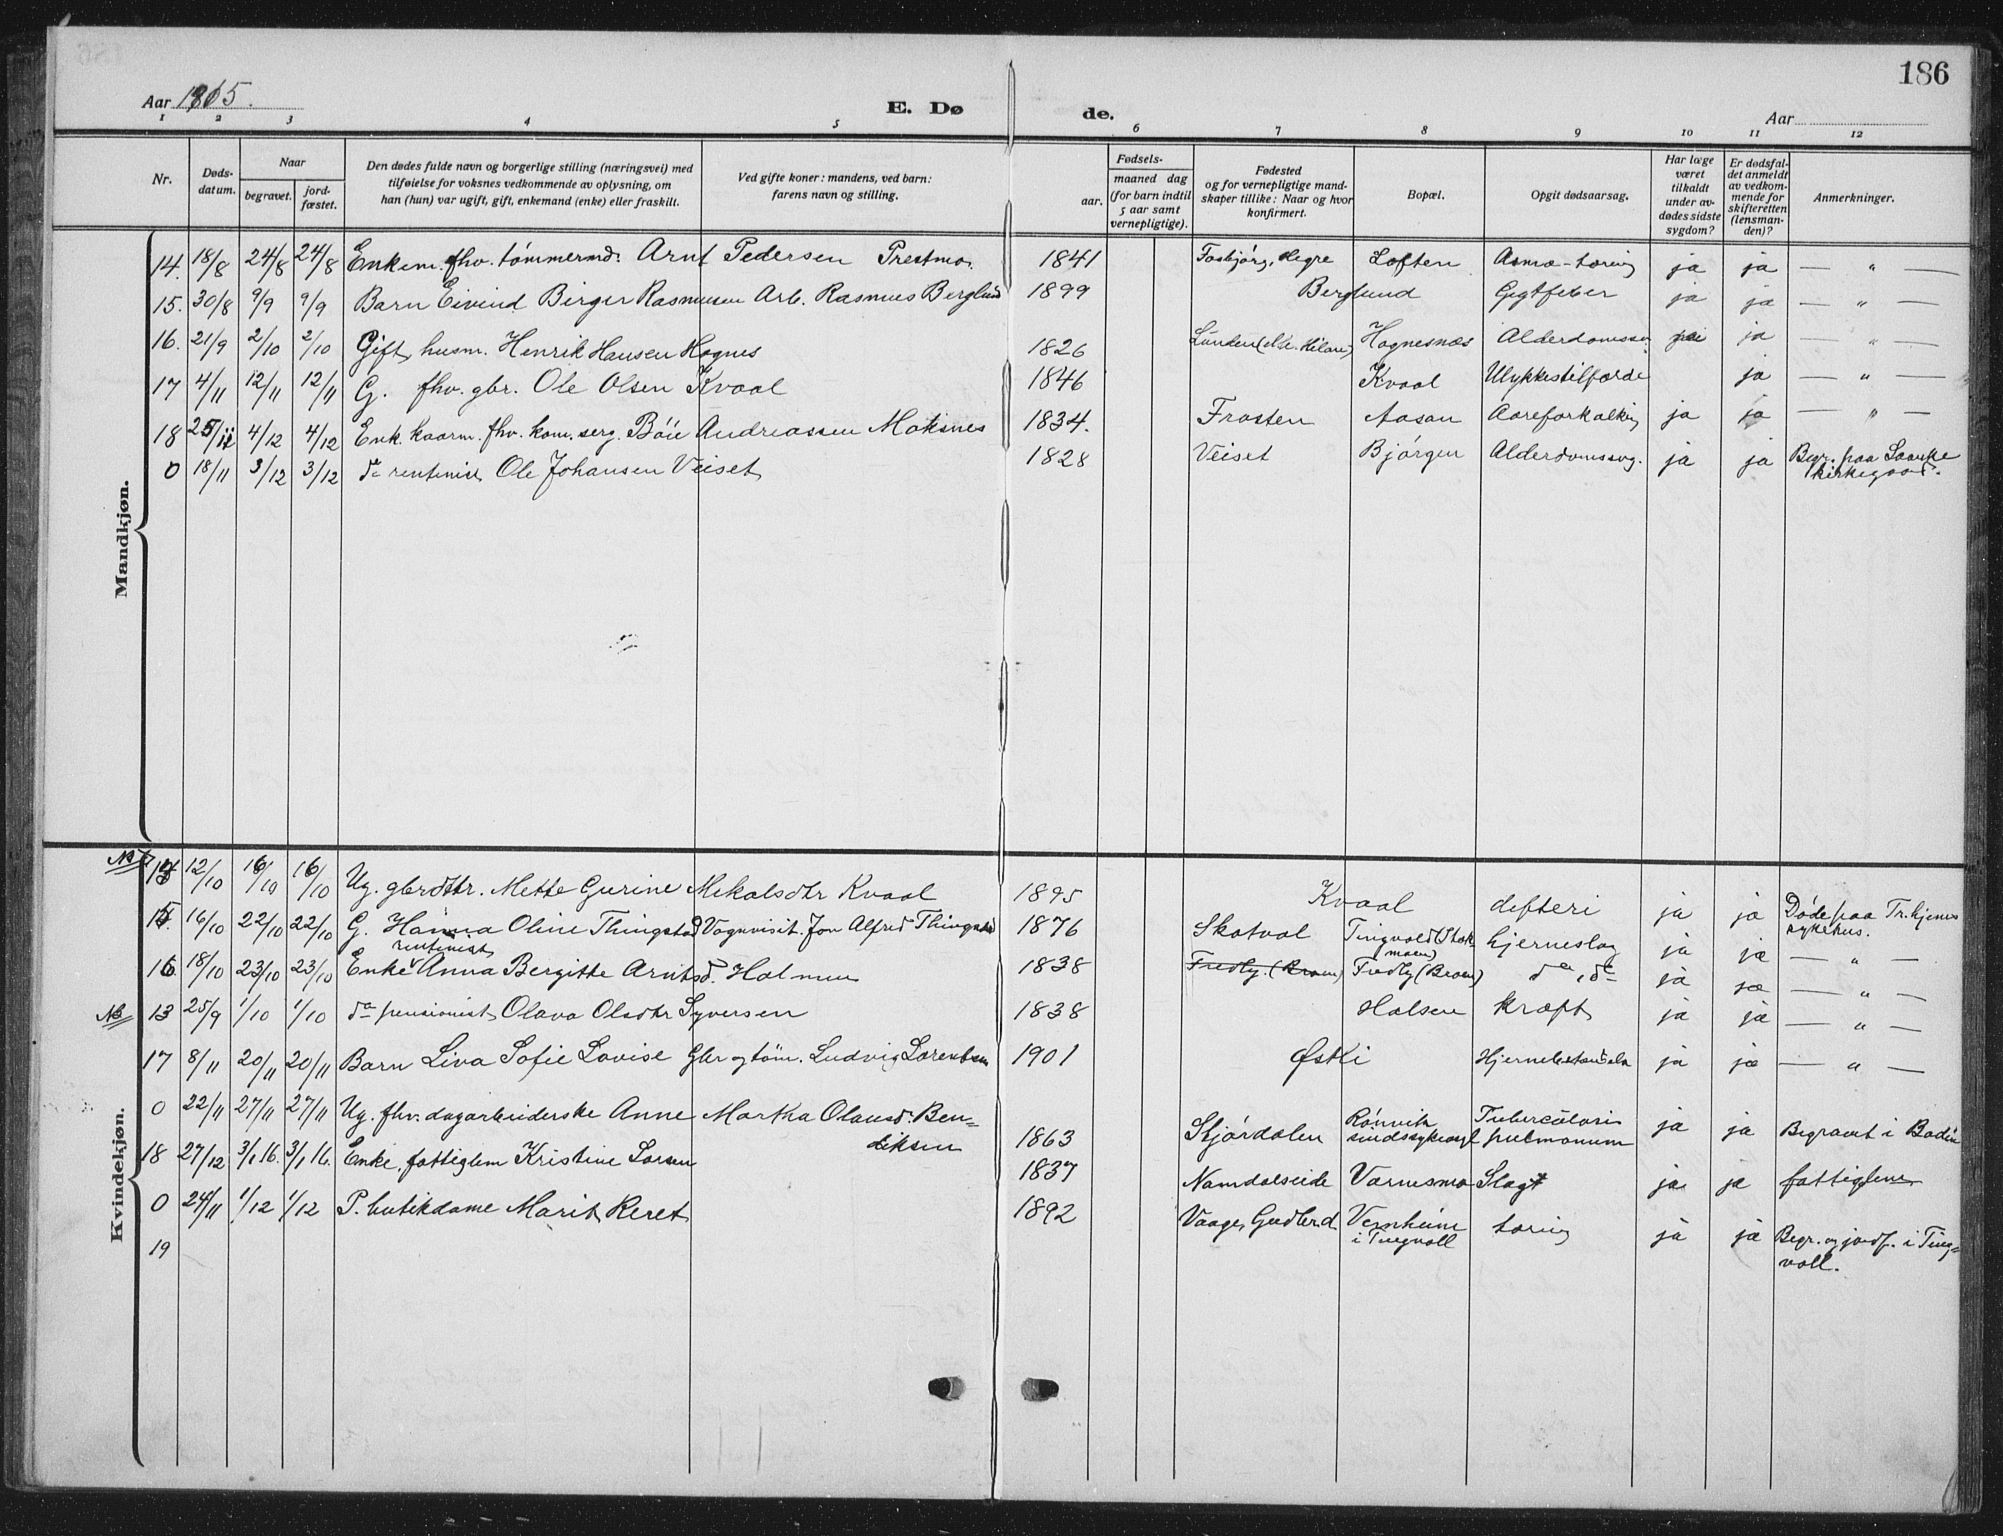 186
Aar 1915.
E. Dø de.
Aar
1 2 3 4 5 6 7 8 9 10 11 12
Nr.
Døds-
datum.
Naar
begravet.
jord-
fæstet.
Den dødes fulde navn og borgerlige stilling (næringsvei) med
tilføielse for voksnes vedkommende av oplysning, om
han (hun) var ugift, gift, enkemand (enke) eller fraskilt.
Ved gifte koner: mandens, ved barn:
farens navn og stilling.
Fødsels-
aar. maaned dag
(for barn indtil
5 aar samt
vernepligtige).
Fødested
og for vernepligtige mand-
skaper tillike: Naar og hvor
konfirmert.
Bopæl.
Opgit dødsaarsag.
Har læge
været
tilkaldt
under av-
dødes sidste
sygdom?
Er dødsfal-
det anmeldt
av vedkom-
mende for
skifteretten
(lensman-
den)?
Anmerkninger.
Mandkjøn.
14. 18/8 24/8 24/8 Enkem. fhv. tømmermd. Arnt Pedersen Prestmo. 1841 Fosbjørg, Hegre Loften Asma-tæring ja ja — " —
15. 30/8 9/9 9/9 Barn Eivind Birger Rasmusen Arb. Rasmus Berglund 1899 Berglund Gigtfeber ja ja — " —
16. 21/9 2/10 2/10 Gift husm. Henrik Hansen Hognes 1826 Lunden Hognesnæs Alderdomssv. ja — " —
17 4/11 12/11 12/11 G. fhv. gbr. Ole Olsen Kvaal 1846 Kvaal Ulykkestilfælde ja — " —
18 25/11 4/12 4/12 Enk. kaarm. fhv. kom. serg. Böie Andreassen Moksnes 1834. Frosten Aasan Aareforkalkng ja ja — " —
0 18/11 3/12 3/12 do rentenist Ole Johansen Veiset 1828 Veiset Bjørgen Alderdomssvg. ja ja Begr. paa Laanke
kirkegaard.
Kvindekjøn.
NB 14 12/10 16/10 16/10 Ug. gbrdttr. Mette Gurine Mekalsdtr Kvaal 1895 Kvaal difteri ja ja Døde paa Tr.hjems
sykehus.
15. 16/10 22/10 22/10 G. Hanna Oline Thingstad Vognvisit. Jon Alfred Thingstad 1876 Skatval Tingvold (Stok-
moen) hjerneslag ja ja — " —
rentenist
16 18/10 23/10 23/10 Enke Anna Bergitte Arntsd. Holmen 1838 Fredly (Broen) Fredly (Broen) do, do ja ja — " —
NB 13 25/9 1/10 1/10 do pensionist Olava Olsdtr Syversen 1838 Halsen kræft ja ja — " —
17 8/11 20/11 20/11 Barn Liva Sofie Lovise Gbr og tøm. Ludvig Lorentsen 1901 Øski ja ja — " —
0 22/11 27/11 27/11 Ug. fhv. dagarbeiderske Anne Martha Olausd. Ben-
diksen 1863 Stjørdalen Rønvik
sindssykeasyl Tuberculosis
pulmonum ja ja Begravet i Bodin
18 27/12 3/1 16. 3/1 16. Enke, fattiglem Kristine Larsen 1837 Namdalseide Værnesmo Slagt ja ja fattiglem
0 24/11 1/12 1/12 P. butikdame Marit Reret 1892 Vaage, Gudbrd. Vernheim
i Tingvoll tæring ja ja Begr. og jordf. i Ting-
voll.
19